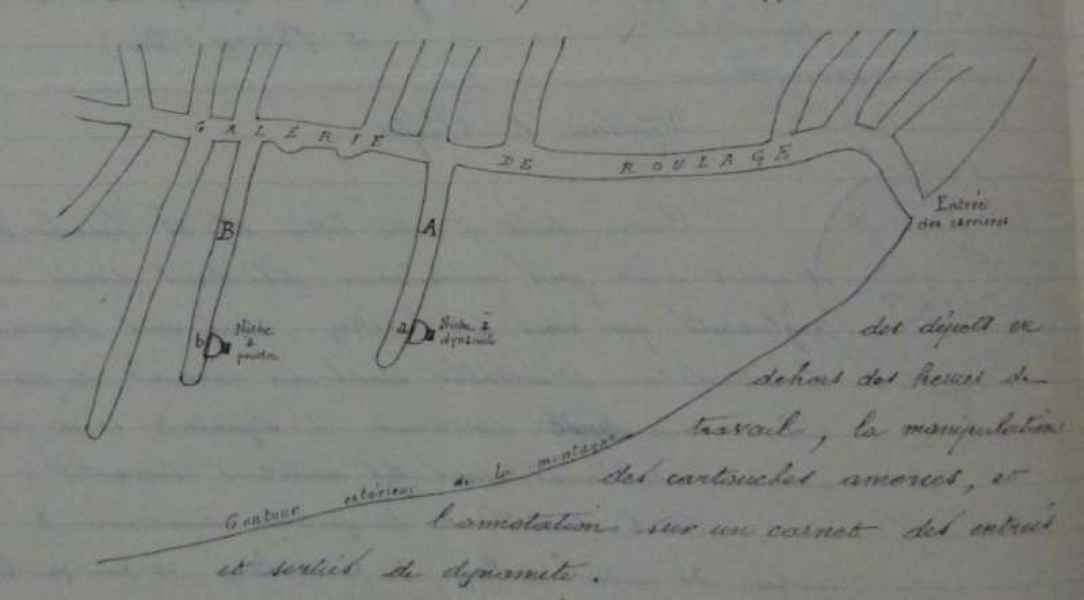 GALERIE DE ROULAGE
Entrée
des carrières
B
A
b
Niche
à
poudre
a
Niche à
dynamite
des dépôts en
dehors des heures de
travail, la manipulation
des cartouches amorces, et
Contour extérieur de la montagne
l'annotation sur un carnet des entrées
et sorties de dynamite.